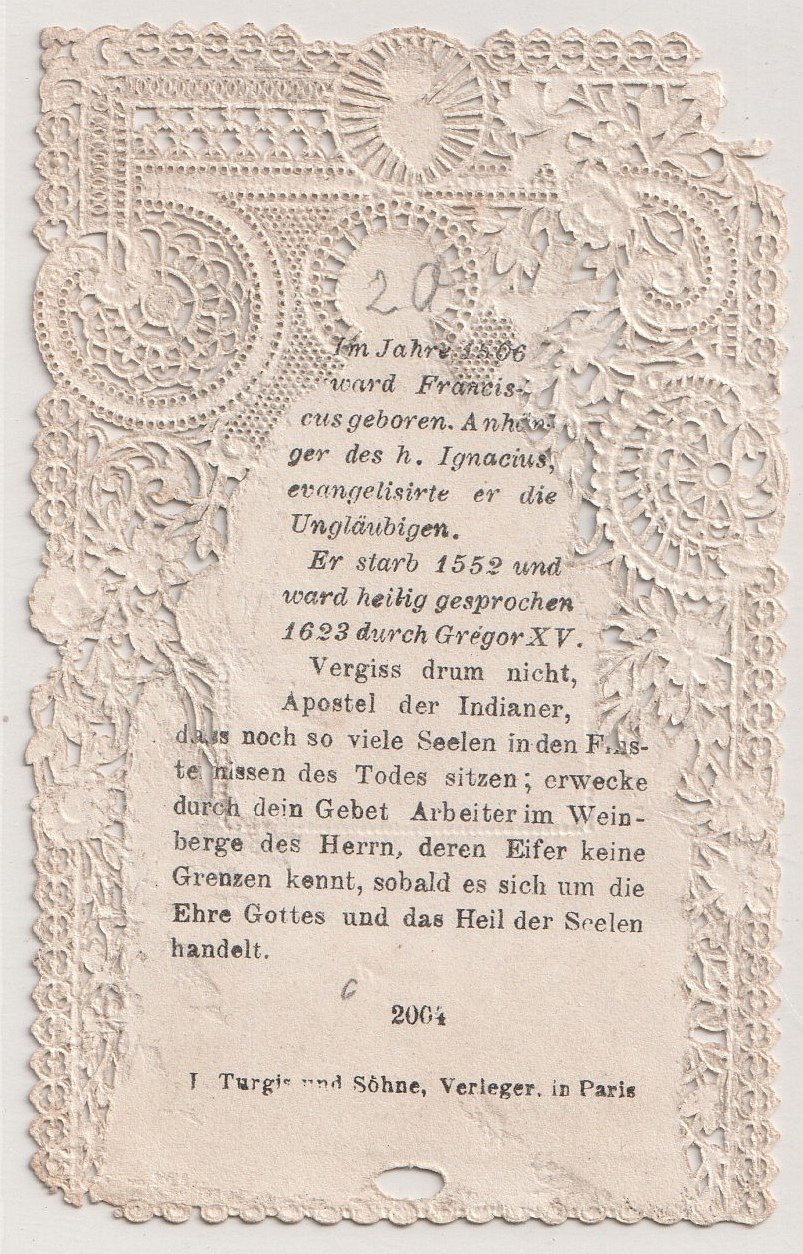 20
Im Jahre 1506
ward Francis-
cus geboren. Anhän-
ger des h. Ignacius,
evangelisirte er die
Ungläubigen.
Er starb 1552 und
ward heilig gesprochen
1623 durch Grégor XV.
Vergiss drum nicht,
Apostel der Indianer,
dass noch so viele Seelen in den Fins-
ternissen des Todes sitzen; erwecke
durch dein Gebet Arbeiter im Wein-
berge des Herrn, deren Eifer keine
Grenzen kennt, sobald es sich um die
Ehre Gottes und das Heil der Seelen
handelt.
2004
Turgis und Söhne, Verleger, in Paris